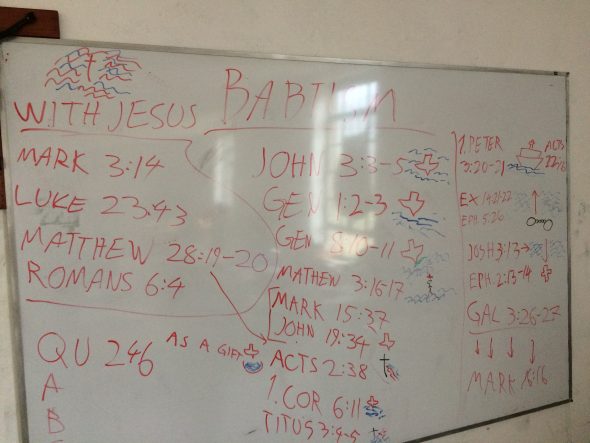 BABTISM
WITH JESUS
MARK 3:14
LUKE 23:43
MATTHEW 28:19-20
ROMANS 6:4
QU 246 AS A GIFT
A
B
JOHN 3:3-5
GEN 1:2-3
GEN 8:10-11
MATHEW 3:16-17
MARK 15:37
JOHN 19:34
ACTS 2:38
1. COR 6:11
TITUS 3:4-5
1. PETER
3:20-21
ACTS
EPH 5:26
JOSH 3:13
EPH. 2:13-14
GAL 3:26-27
MARK 16:16